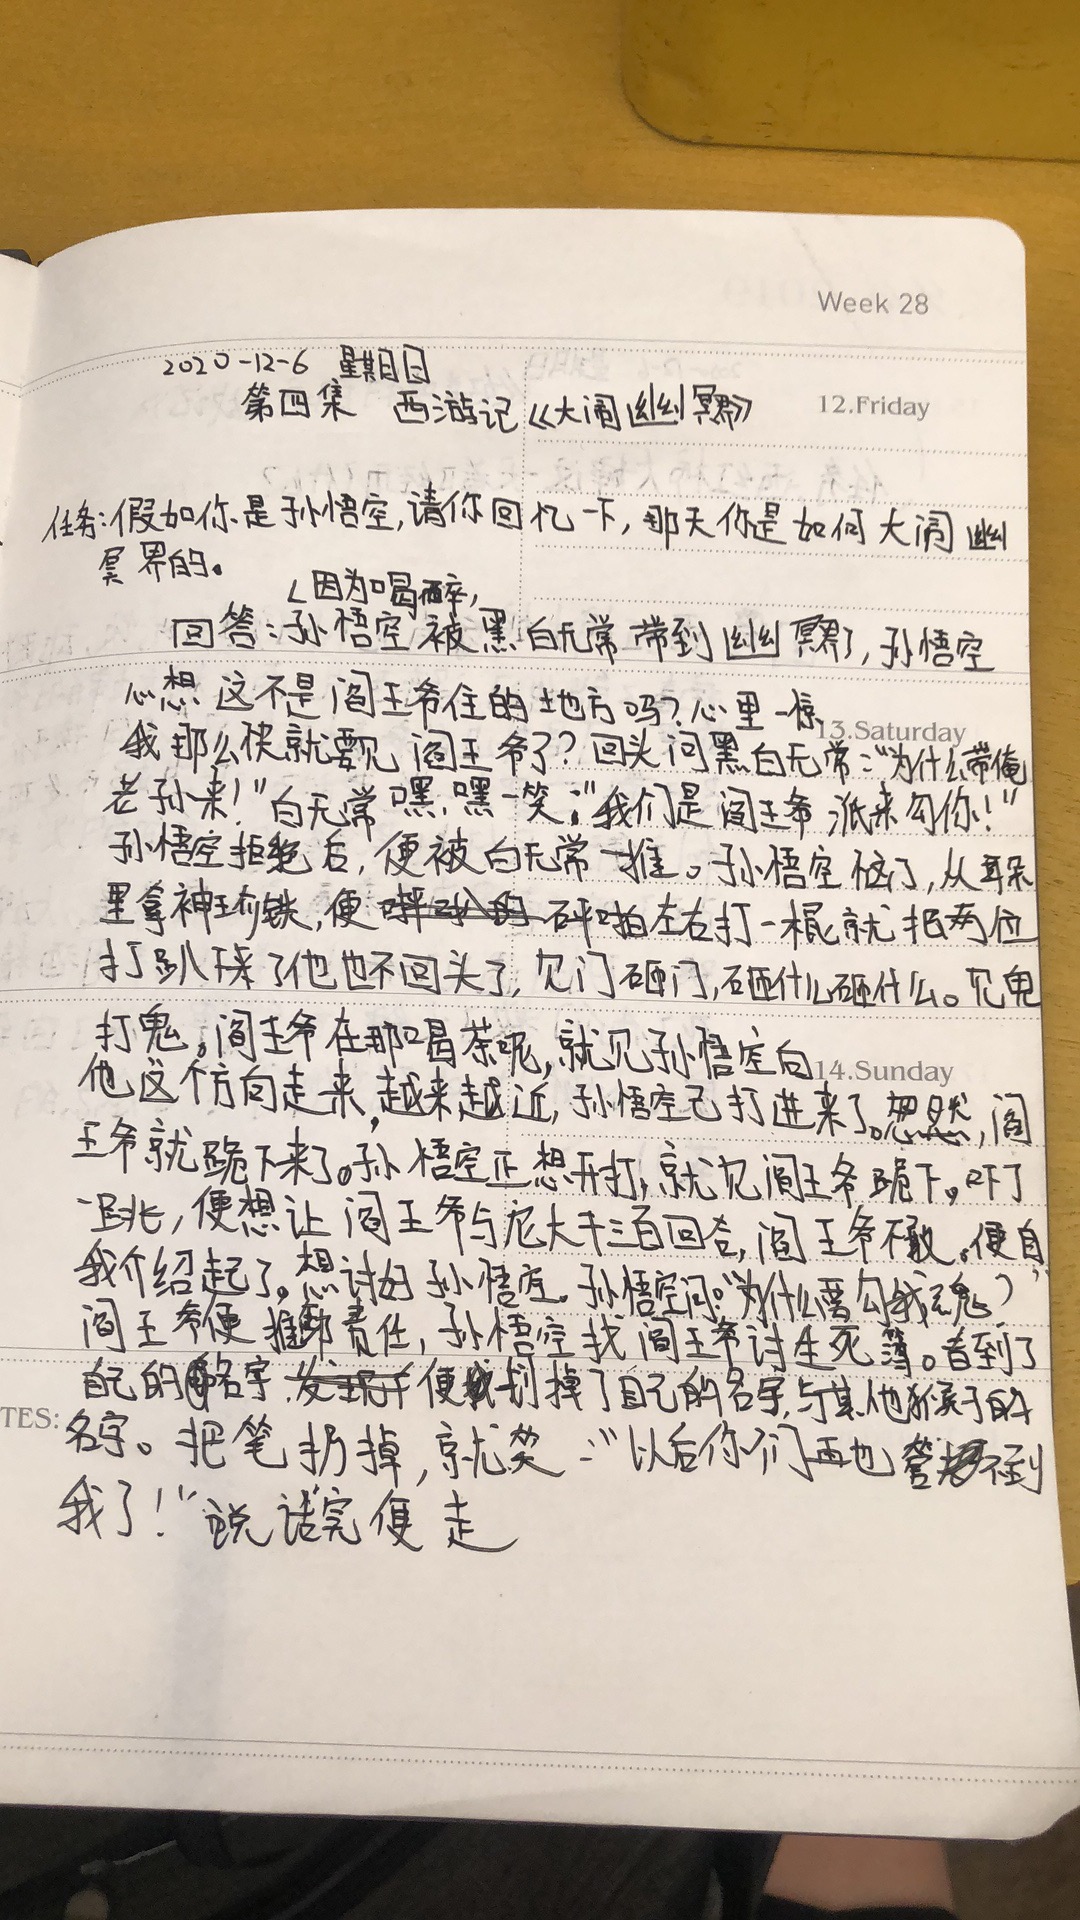 Week 28
2020-12-6 星期日
12.Friday
第四集 西游记《大闹幽冥界》
任务:假如你是孙悟空,请你回忆一下,那天你是如何大闹幽
冥界的。
因为喝醉,
回答:孙悟空被黑白无常带到幽冥界了,孙悟空
心想这不是阎王爷住的地方吗?心里一惊,
13.Saturday
我那么快就要见阎王爷了?回头问黑白无常:"为什么带俺
老孙来!"白无常嘿嘿一笑:"我们是阎王爷派来勾你!"
孙悟空拒绝后,便被白无常一推。孙悟空恼了,从耳朵
里拿神珍铁,便砰啪左右打一棍就把两位
打趴下来了他也不回头了,见门砸门,砸什么砸什么。见鬼
打鬼。阎王爷在那喝茶呢,就见孙悟空向
14.Sunday
他这个方向走来,越来越近,孙悟空己打进来了。忽然,阎
王爷就跪下来了。孙悟空正想开打,就见阎王爷跪下。吓了
跳,便想让阎王爷与大干三百回合,阎王爷不敢。便自
我介绍起了。想讨好孙悟空。孙悟空问:"为什么要勾我魂?
阎王爷便推卸责任,孙悟空找阎王爷讨生死簿。看到了
自己的名字便划掉了自己的名字,与其他猴子的
TES:
名字。把笔扔掉,就笑:"以后你们再也管不到
我了!"说话完便走